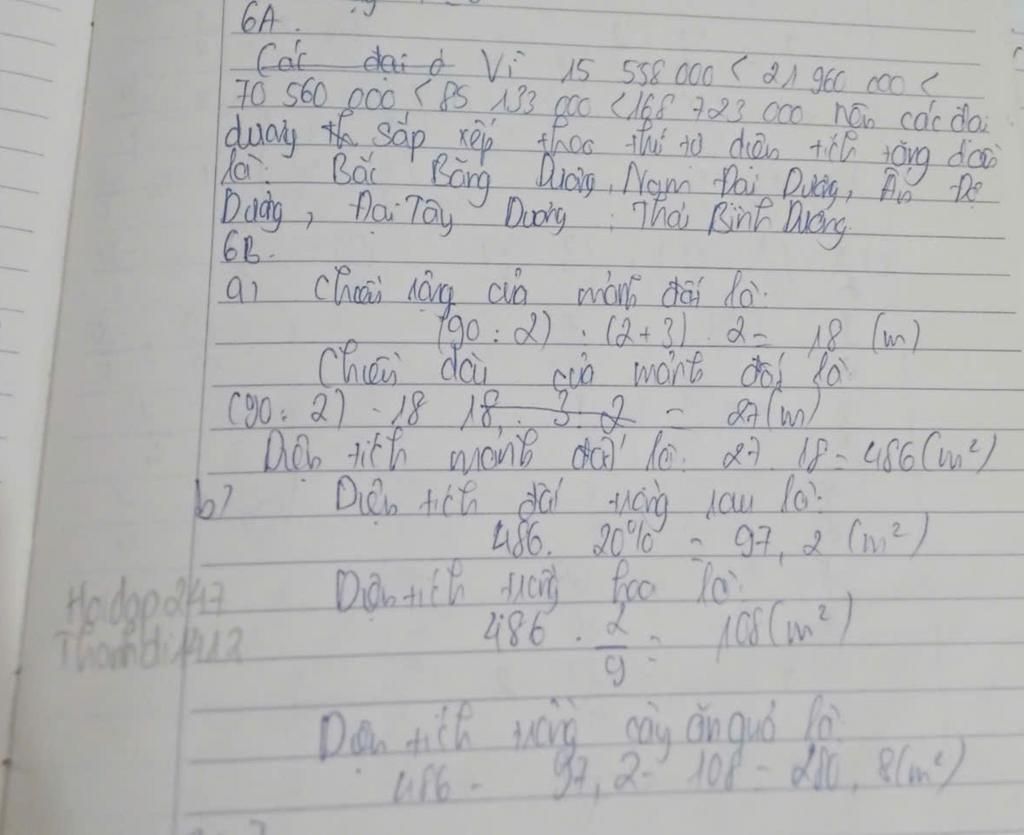 6A.
Các đại d Vì 15 558 000 < 21 960 000 <
70 560 000 < 85 133 000 < 168 723 000 nên các đại
dương th sắp xếp theo thứ tự diện tích tăng dần
là: Bắc Băng Dương, Nam Đại Dương, Ấn Độ
Dương, Đại Tây Dương, Thái Bình Dương.
6B.
a) Chiều rộng của mảnh đất là:
(90 : 2) : (2+3) . 2 = 18 (m)
Chiều dài của mảnh đất là:
(90 : 2) - 18 18 : 3 . 2 = 27 (m)
Diện tích mảnh đất là: 27 . 18 = 486 (m²)
b) Diện tích đất trồng rau là:
486 . 20% = 97,2 (m²)
Diện tích trồng hoa là:
486 . 2/9 = 108 (m²)
Diện tích trồng cây ăn quả là:
486 - 97,2 - 108 = 280,8 (m²)
Hoidap247